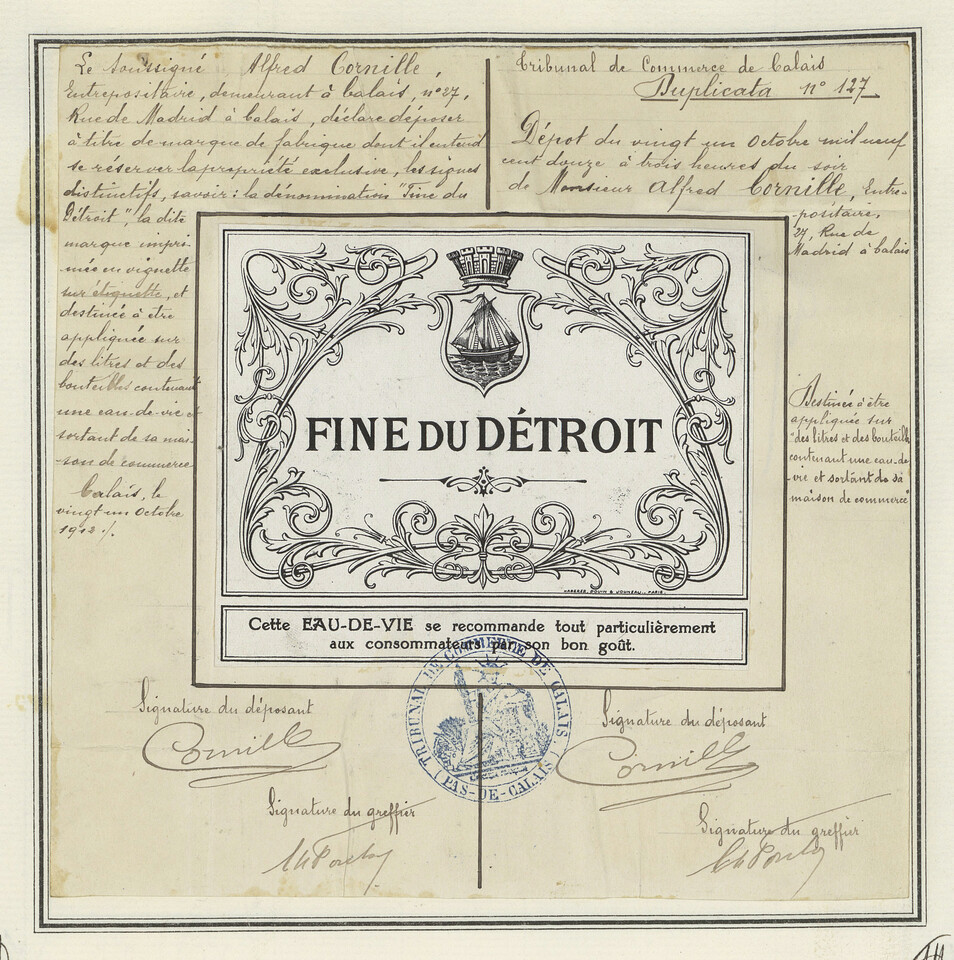 Le soussigné Alfred Cornille,
Entrepositaire, demeurant à Calais, n° 27,
Rue de Madrid à Calais, déclare déposer
à titre de marque de fabrique dont il entend
se réserver la propriété exclusive, les signes
distinctifs, savoir : la dénomination "Fine du
Détroit", la dite
marque impri-
mée en vignette
sur étiquette, et
destinée à être
appliquée sur
des litres et des
bouteilles contenant
une eau-de-vie et
sortant de sa mai-
son de commerce
Calais, le
vingt un Octobre
1912 ./.
Tribunal de Commerce de Calais
Duplicata n° 127
Dépot du vingt un Octobre mil neuf
cent douze à trois heures du soir
de Monsieur Alfred Cornille, Entre-
positaire,
27, Rue de
Madrid à Calais
Destinée à être
appliquée sur
"des litres et des bouteilles
contenant une eau-de-
vie et sortant de sa
maison de commerce"
FINE DU DÉTROIT
Cette EAU-DE-VIE se recommande tout particulièrement
aux consommateurs par son bon goût.
TRIBUNAL DE COMMERCE DE CALAIS
(PAS-DE-CALAIS)
Signature du déposant
Cornille
Signature du greffier
Signature du déposant
Cornille
Signature du greffier